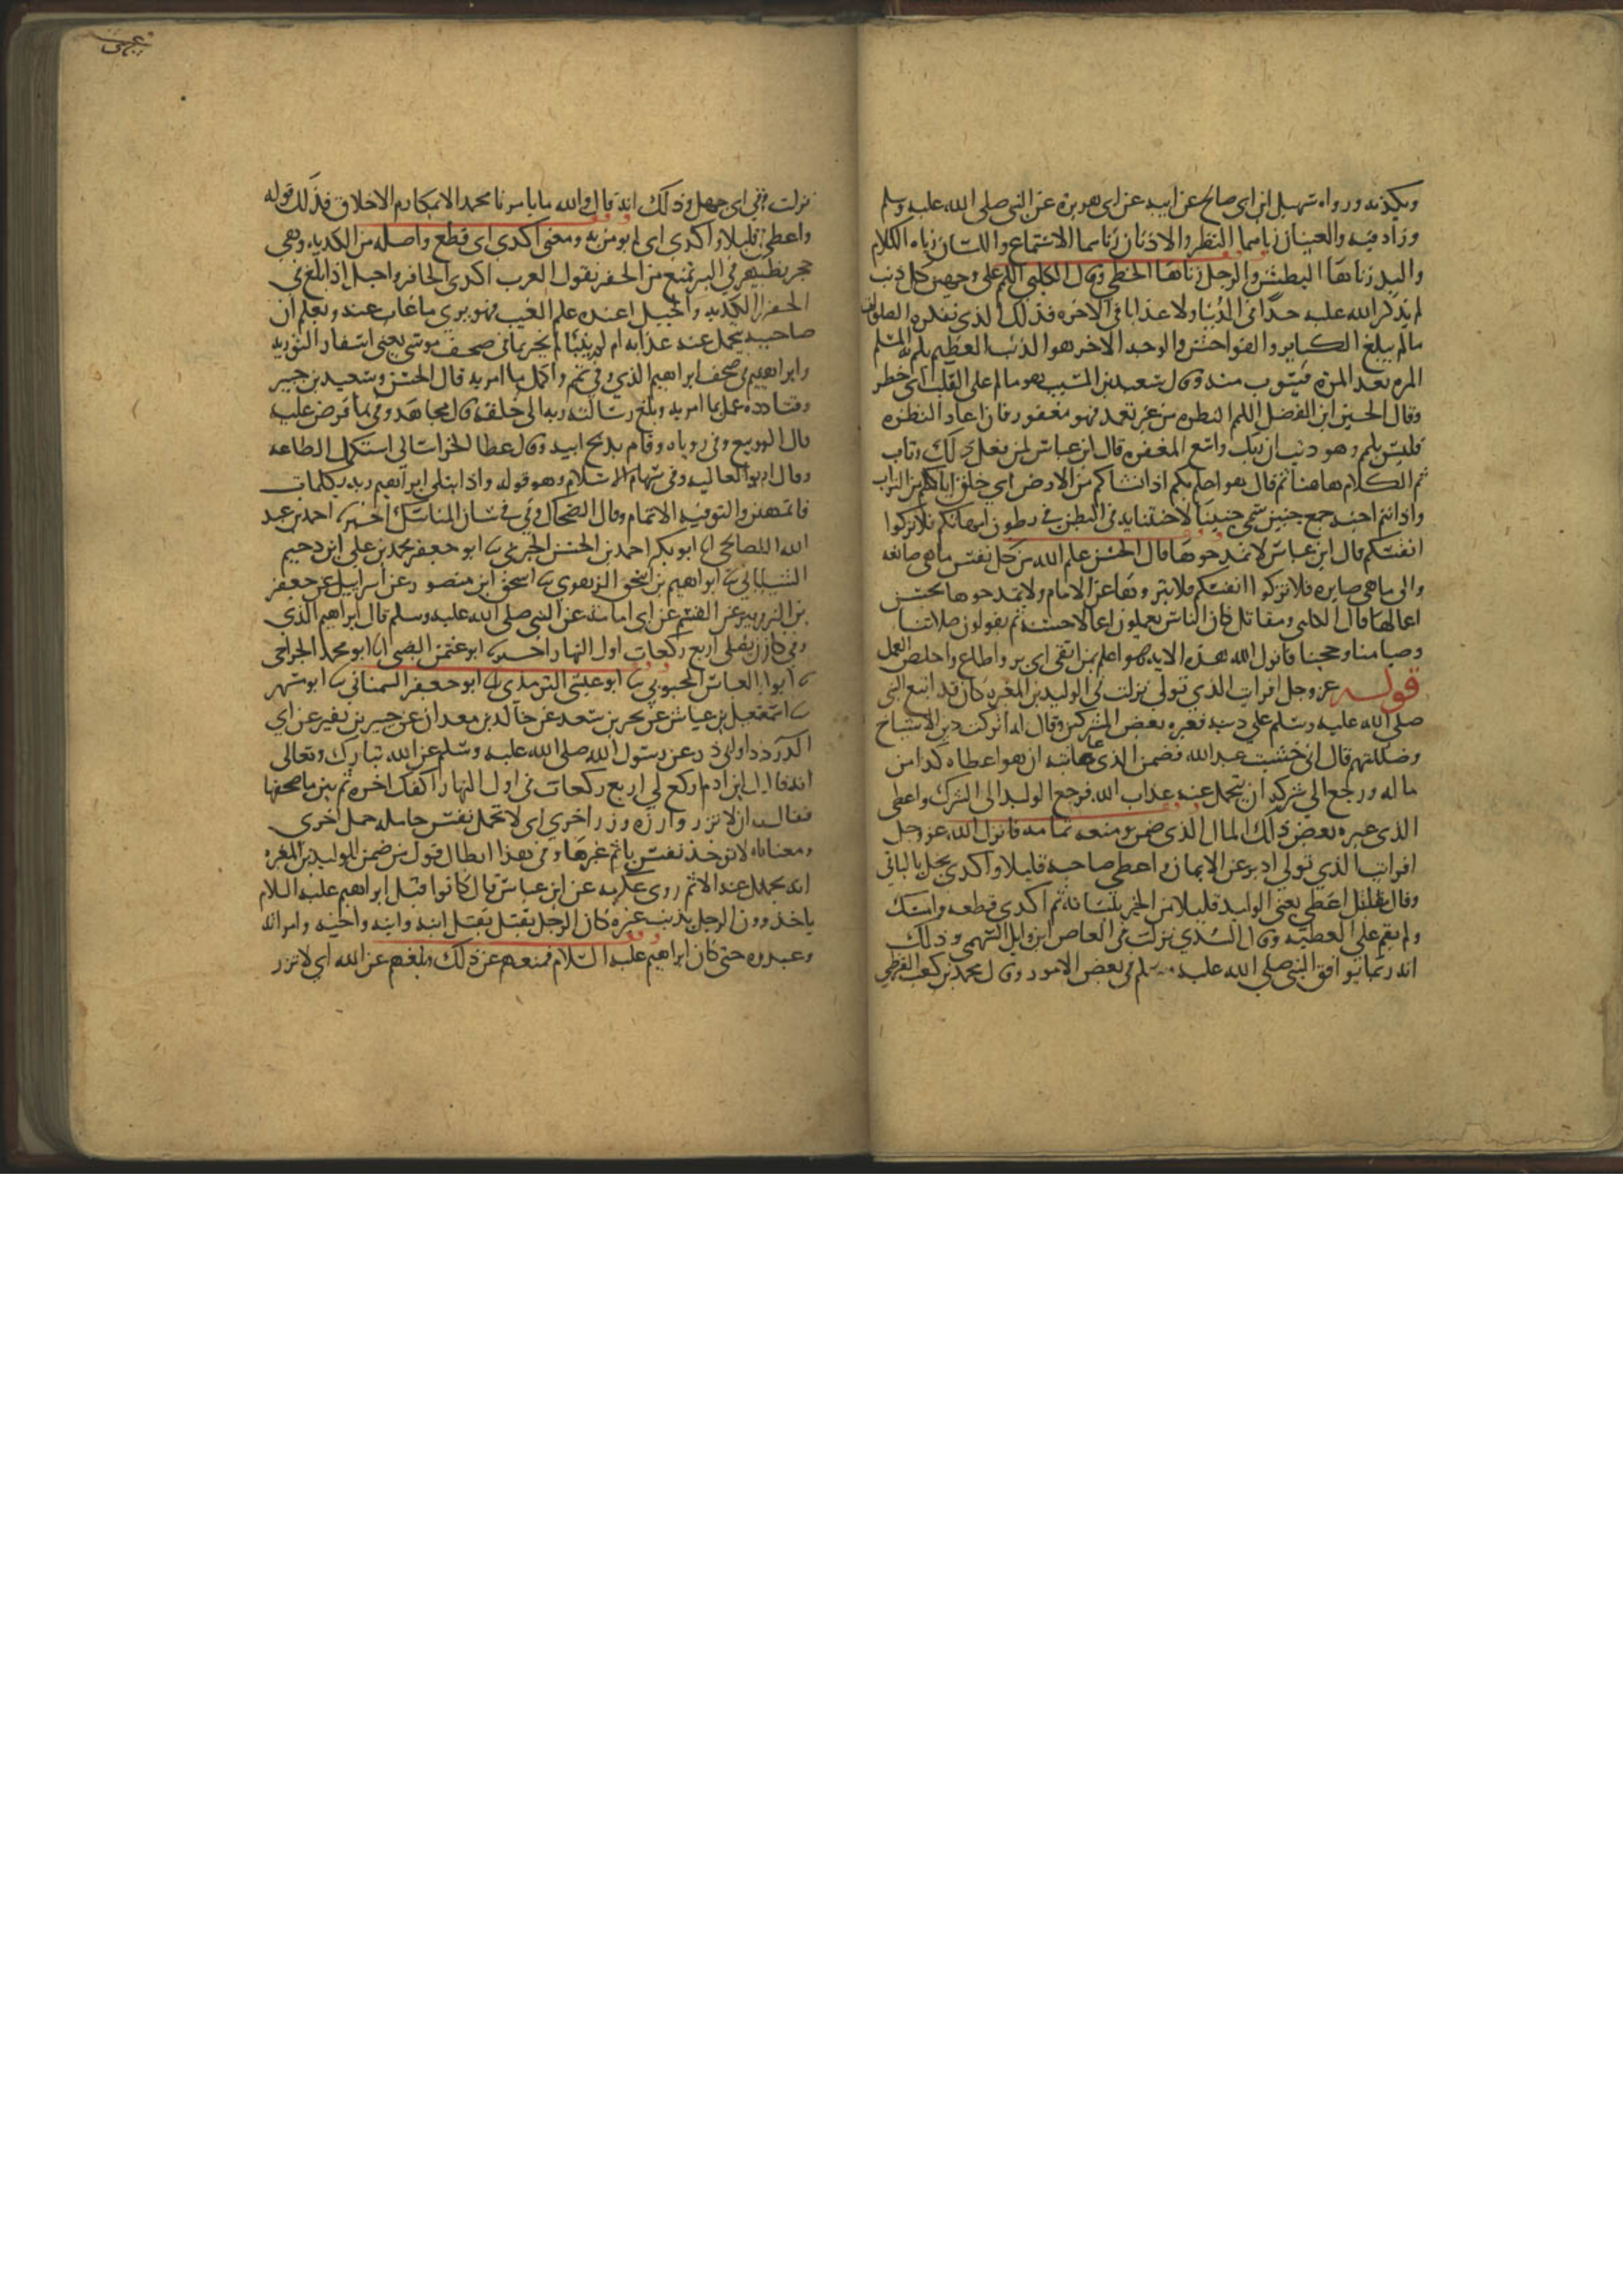 ويكذبه ورواه سهيل ابن ابي صالح عن ابيه عن ابي هريرة عن النبي صلى الله عليه وسلم
وزاد فيه والعينان زناهما النظر والاذنان زناهما الاستماع واللسان زناه الكلام
واليد زناها البطش والرجل زناها الخطى وقال الكلبي اللمم على وجهين كل ذنب
لم يذكر الله عليه حدا في الدنيا ولا عذابا في الاخرة فذلك الذي تكفره الصلوات
ما لم يبلغ الكباير والفواحش والوجه الاخر هو الذنب العظيم يلم به المسلم
المرة بعد المرة فيتوب منه وقال سعيد بن المسيب هو ما لم على القلب اي خطر
وقال الحسين ابن الفضل اللمم النظرة من غير تعمد فهو مغفور فان اعاد النظرة
فليس بلمم وهو ذنب ان ربك واسع المغفرة قال ابن عباس لمن يفعل ذلك وتاب
تم الكلام هاهنا ثم قال هو اعلم بكم اذ انشاكم من الارض اي خلق اباكم من التراب
واذ انتم اجنة جمع جنين سمي جنينا لاجتنانه في البطن في بطون امهاتكم فلا تزكوا
انفسكم قال ابن عباس لا تمدحوها قال الحسن علم الله من كل نفس ما هي صانعة
والى ما هي صايرة فلا تزكوا انفسكم فلا تبروها عن الاثام ولا تمدحوها بحسن
اعمالها قال الكلبي ومقاتل كان الناس يعملون اعمالا حسنة ثم يقولون صلاتنا
وصيامنا وحجنا فانزل الله هذه الاية هو اعلم بمن اتقى اي بر واطاع واخلص العمل
قوله عز وجل افرايت الذي تولى نزلت في الوليد بن المغيرة كان قد اتبع النبي
صلى الله عليه وسلم على دينه فعيره بعض المشركين وقال له اتركت دين الاشياخ
وضللتهم قال اني خشيت عذاب الله فضمن الذي عاتبه ان هو اعطاه كذا من
ماله ورجع الى شركه ان يتحمل عنه عذاب الله فرجع الوليد الى الشرك واعطى
الذي عيره بعض ذلك المال الذي ضمن ومنعه تمامه فانزل الله عز وجل
افرايت الذي تولى ادبر عن الايمان واعطى صاحبه قليلا واكدى بخل بالباقي
وقال مقاتل اعطى يعني الوليد قليلا من الخير بلسانه ثم اكدى قطعه وامسك
ولم يقم على العطية وقال السدي نزلت في العاص ابن وايل السهمي وذلك
انه ربما يوافق النبي صلى الله عليه وسلم في بعض الامور وقال محمد بن كعب القرظي
نزلت في ابي جهل وذلك انه قال والله ما يامرنا محمد الا بمكارم الاخلاق فذلك قوله
واعطى قليلا واكدى اي لم يومن به ومعنى اكدى اي قطع واصله من الكدية وهي
حجر يظهر في البير تمنع من الحفر يقول العرب اكدى الحافر واجبل اذا بلغ في
الحفر الكدية والجبل اعنده علم الغيب فهو يرى ما غاب عنه ويعلم ان
صاحبه يحمل عنه عذابه ام لم ينبا لم يخبر بما في صحف موسى يعني اسفار التورية
وابراهيم في صحف ابراهيم الذي وفى تمم واكمل ما امر به قال الحسن وسعيد بن جبير
وقتادة عمل بما امر به وبلغ رسالة ربه الى خلقه قال مجاهد وفى بما فرض عليه
قال الربيع وفى روياه وقام بذبح ابنه وقال عطا الخراساني استكمل الطاعة
وقال ابو العالية وفى سهام الاسلام وهو قوله واذ ابتلى ابراهيم ربه بكلمات
فاتمهن والتوفية الاتمام وقال الضحاك وفى في شان المناسك اخبرنا احمد بن عبد
الله الصالحي انا ابو بكر احمد بن الحسن الحيري نا ابو جعفر محمد بن علي ابن دحيم
الشيباني نا ابراهيم بن اسحق الزهري نا اسحق ابن منصور عن اسرايل عن جعفر
بن الزبير عن القسم عن ابي امامة عن النبي صلى الله عليه وسلم قال ابراهيم الذي
وفى كان يصلي اربع ركعات اول النهار اخبرنا ابو عثمن الضبي انا ابو محمد الجراحي
نا ابو العباس المحبوبي نا ابو عيسى الترمذي نا ابو جعفر السمناني نا ابو مسهر
نا اسمعيل بن عياش عن بحير بن سعد عن خالد بن معدان عن جبير بن نفير عن ابي
الدرداء وابي ذر عن رسول الله صلى الله عليه وسلم عن الله تبارك وتعالى
انه قال ابن ادم اركع لي اربع ركعات في اول النهار اكفك اخره ثم بين ما في صحفها
فقال ان لا تزر وازرة وزر اخرى اي لا تحمل نفس حاملة حمل اخرى
ومعناه لا توخذ نفس باثم غيرها وفي هذا ابطال قول من ضمن الوليد بن المغيرة
انه يحمل عنه الاثم روى عكرمة عن ابن عباس قال كانوا قبل ابراهيم عليه السلام
ياخذون الرجل بذنب غيره كان الرجل يقتل بقتل ابيه وابنه واخيه وامراته
وعبده حتى كان ابراهيم عليه السلام فمنعهم عن ذلك وبلغهم عن الله اي لا تزر